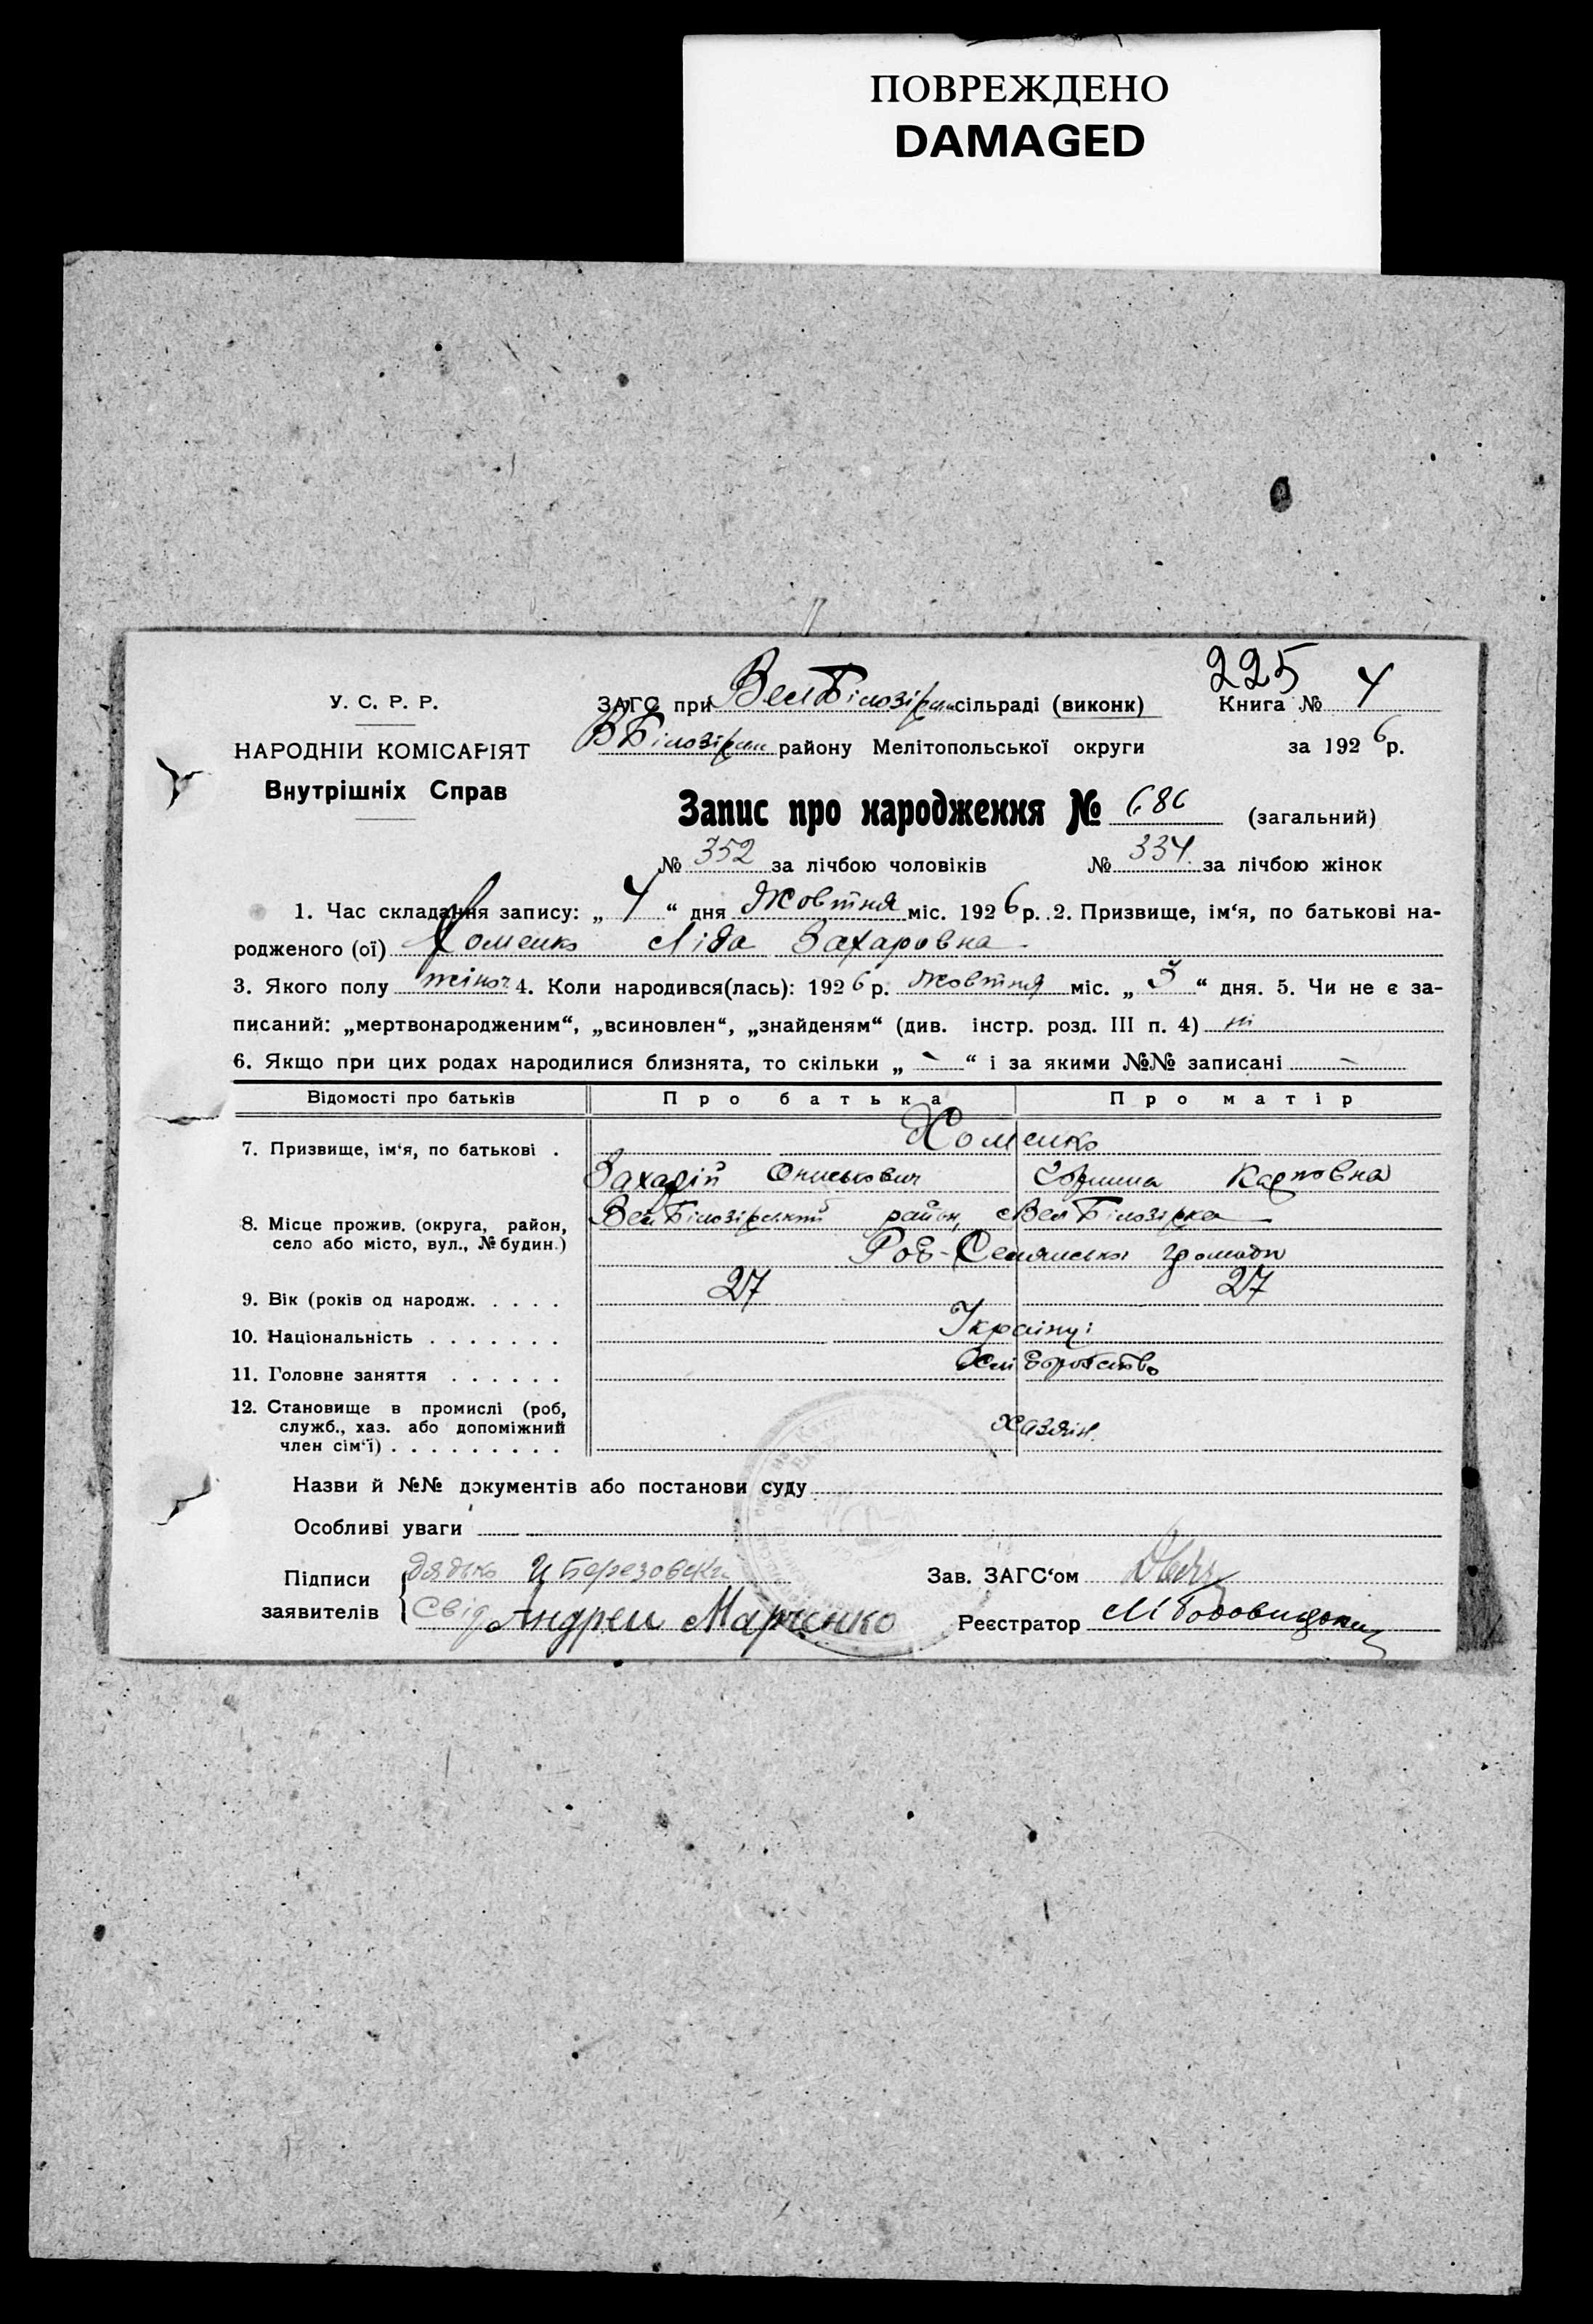 ПОВРЕЖДЕНО
DAMAGED
225
У. С. Р. Р.
ЗАГС при Вел Білозірськ сільраді (виконк) Книга № 4
НАРОДНІЙ КОМІСАРІЯТ
В Білозірськ району Мелітопольської округи за 1926 р.
Внутрішніх Справ
Запис про народження № 686 (загальний)
№ 352 за лічбою чоловіків № 334 за лічбою жінок
1. Час складання запису: „ 4 “ дня Жовтня міс. 1926 р. 2. Призвище, ім‘я, по батькові на-
родженого (ої) Хоменко Ліда Захаровна
3. Якого полу жіноч 4. Коли народився(лась): 1926 р. жовтня міс. „ 3 “ дня. 5. Чи не є за-
писаний: „мертвонародженим“, „всиновлен“, „знайденям“ (див. інстр. розд. III п. 4) ні
6. Якщо при цих родах народилися близнята, то скільки „ - “ і за якими №№ записані -
Відомості про батьків Про батька Про матір
7. Призвище, ім‘я, по батькові . Хоменко
Захарій Ониськович Карповна
8. Місце прожив. (округа, район, село або місто, вул., № будин.) Вел Білозірський район, Вел Білозірка
громади
9. Вік (років од народж. . . . . 27 27
10. Національність . . . . . . . Українці
11. Головне заняття . . . . . . Хліборобство
12. Становище в промислі (роб, служб., хаз. або допоміжний член сім‘ї) . . . . . . . . . хазяїн.
Назви й №№ документів або постанови суду
Особливі уваги
Підписи дядько Березовськ Зав. ЗАГС‘ом
заявителів Свід Андрей Марченко Реєстратор